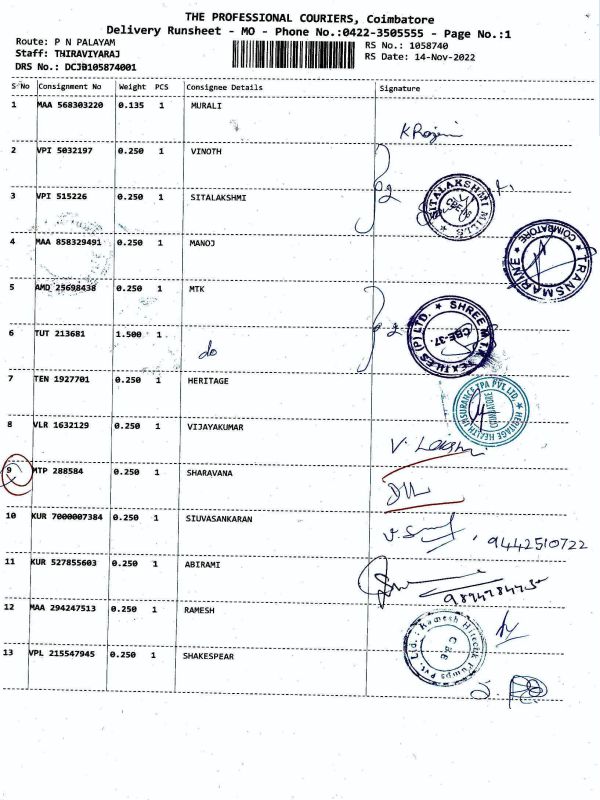 THE PROFESSIONAL COURIERS, Coimbatore
Delivery Runsheet - MO - Phone No.:0422-3505555 - Page No.:1
Route: P N PALAYAM
Staff: THIRAVIYARAJ
DRS No.: DCJB105874001
RS No.: 1058740
RS Date: 14-Nov-2022
S No Consignment No Weight PCS Consignee Details Signature
1 MAA 568303220 0.135 1 MURALI
2 VPI 5032197 0.250 1 VINOTH
3 VPI 515226 0.250 1 SITALAKSHMI
}2
SITALAKSHMI MILLS
4 MAA 858329491 0.250 1 MANOJ
TRANSMARINE COIMBATORE
5 AMD 25698438 0.250 1 MTK
6 TUT 213681 1.500 1 do
}2
SHREE M.T.K TEXTILES (P) LTD. CBE-37.
7 TEN 1927701 0.250 1 HERITAGE
HERITAGE HEALTH INSURANCE TPA PVT LTD. COIMBATORE
8 VLR 1632129 0.250 1 VIJAYAKUMAR
9 MTP 288584 0.250 1 SHARAVANA
10 KUR 7000007384 0.250 1 SIUVASANKARAN
9442510722
11 KUR 527855603 0.250 1 ABIRAMI
12 MAA 294247513 0.250 1 RAMESH
Ramesh Hitech Pumps Pvt. Ltd.
13 VPL 215547945 0.250 1 SHAKESPEAR